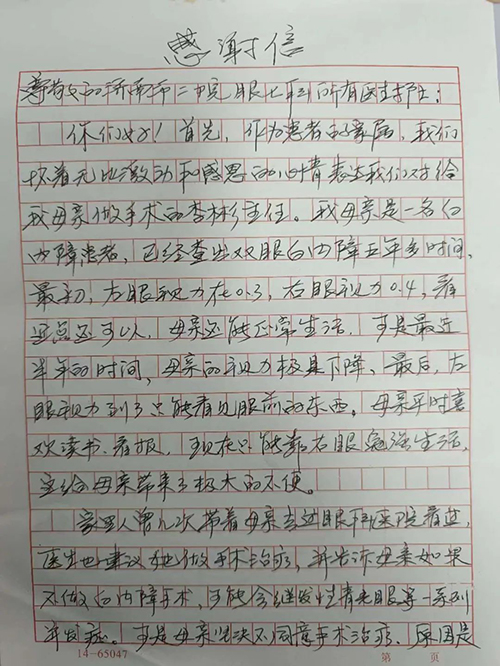 感谢信
尊敬的济南市二院眼七科所有医生护士:
你们好!首先,作为患者的家属,我们
怀着无比激动和感恩的心情表达我们对给
我母亲做手术的李彬主任。我母亲是一名白
内障患者,已经查出双眼白内障五年多时间,
最初,左眼视力在0.3,右眼视力0.4,看
近点还可以,母亲还能正常生活,可是最近
半年的时间,母亲的视力极具下降、最后,左
眼视力到了只能看见眼前的东西。母亲平时喜
欢读书、看报,现在只能靠右眼勉强生活,
这给母亲带来了极大的不便。
家里人曾几次带着母亲去过眼科医院看过,
医生也建议她做手术治疗,并告诉母亲如果
不做白内障手术,可能会继发性青光眼等一系列
并发症。可是母亲坚决不同意手术治疗,原因是
14-65047 第 页